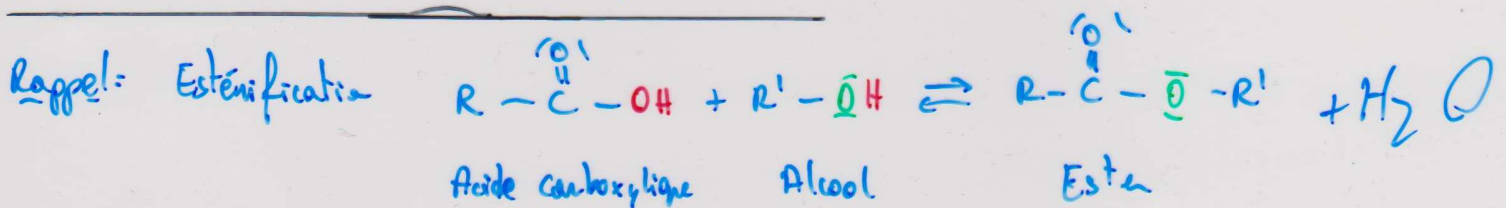 Rappel: Estérification R - C - OH + R' - OH ⇌ R - C - O - R' + H2O
O O
Acide carboxylique Alcool Ester